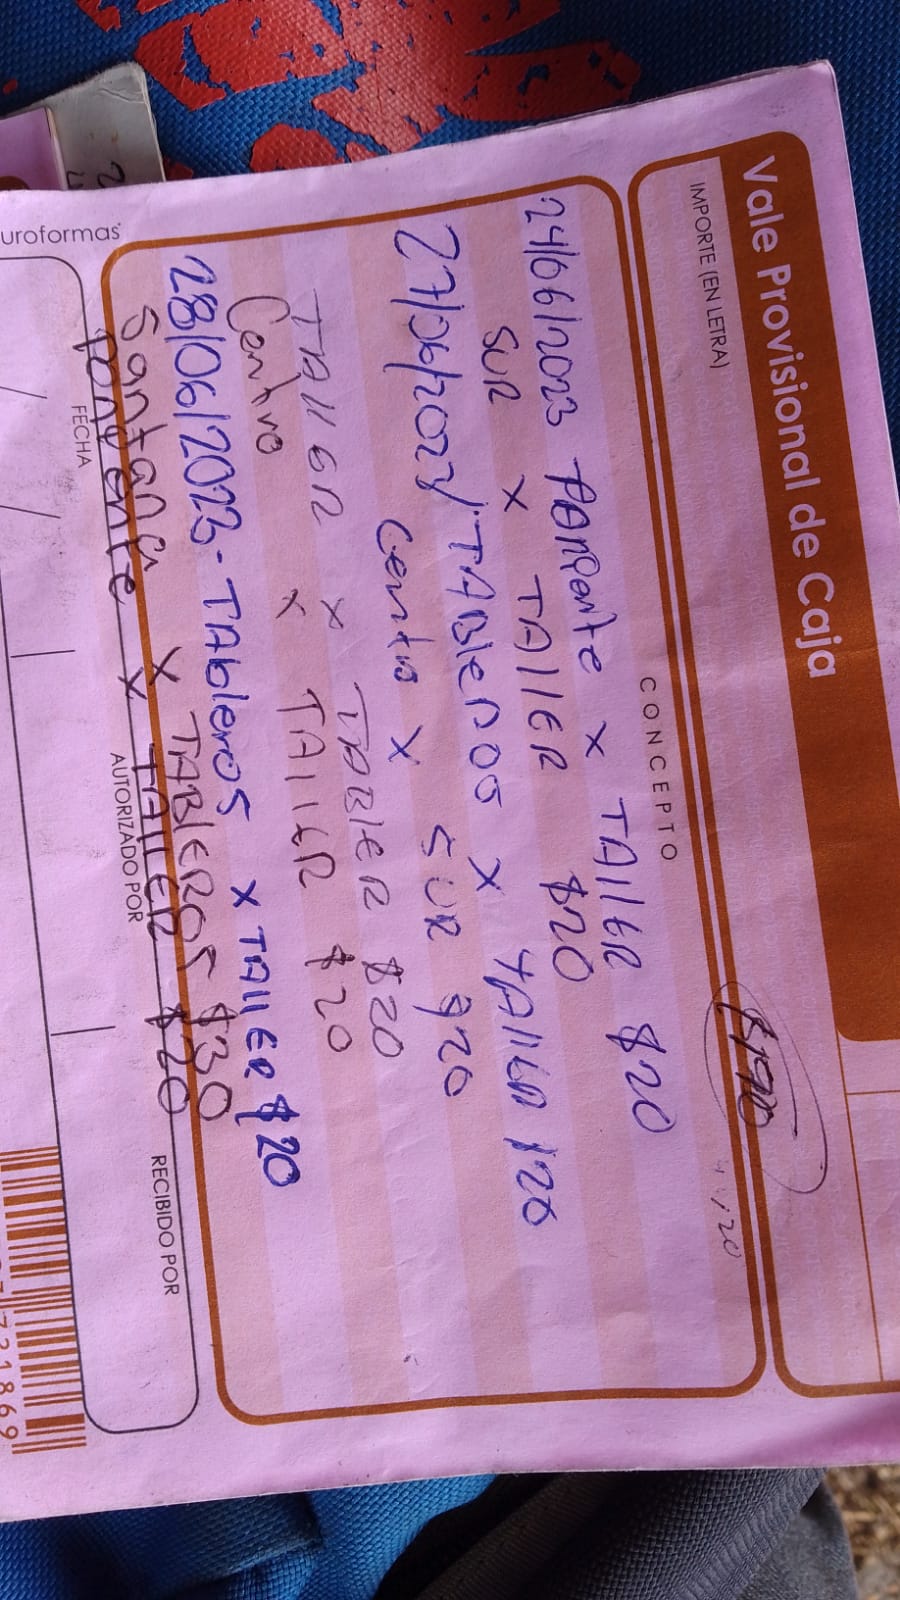 Vale Provisional de Caja
IMPORTE (EN LETRA)
$190
CONCEPTO
24/06/2023 Poniente x TAllER $20
SUR x TAllER $20
27/06/2023/ TABleros x TAllER $20
Centro x SUR $20
TAllER x TABlER $20
Centro x TAllER $20
28/06/2023-TAbleros x TAllER $20
Santana x TABLEROS $30
Poniente x TAllER $20
uroformas
FECHA
AUTORIZADO POR
RECIBIDO POR
721869